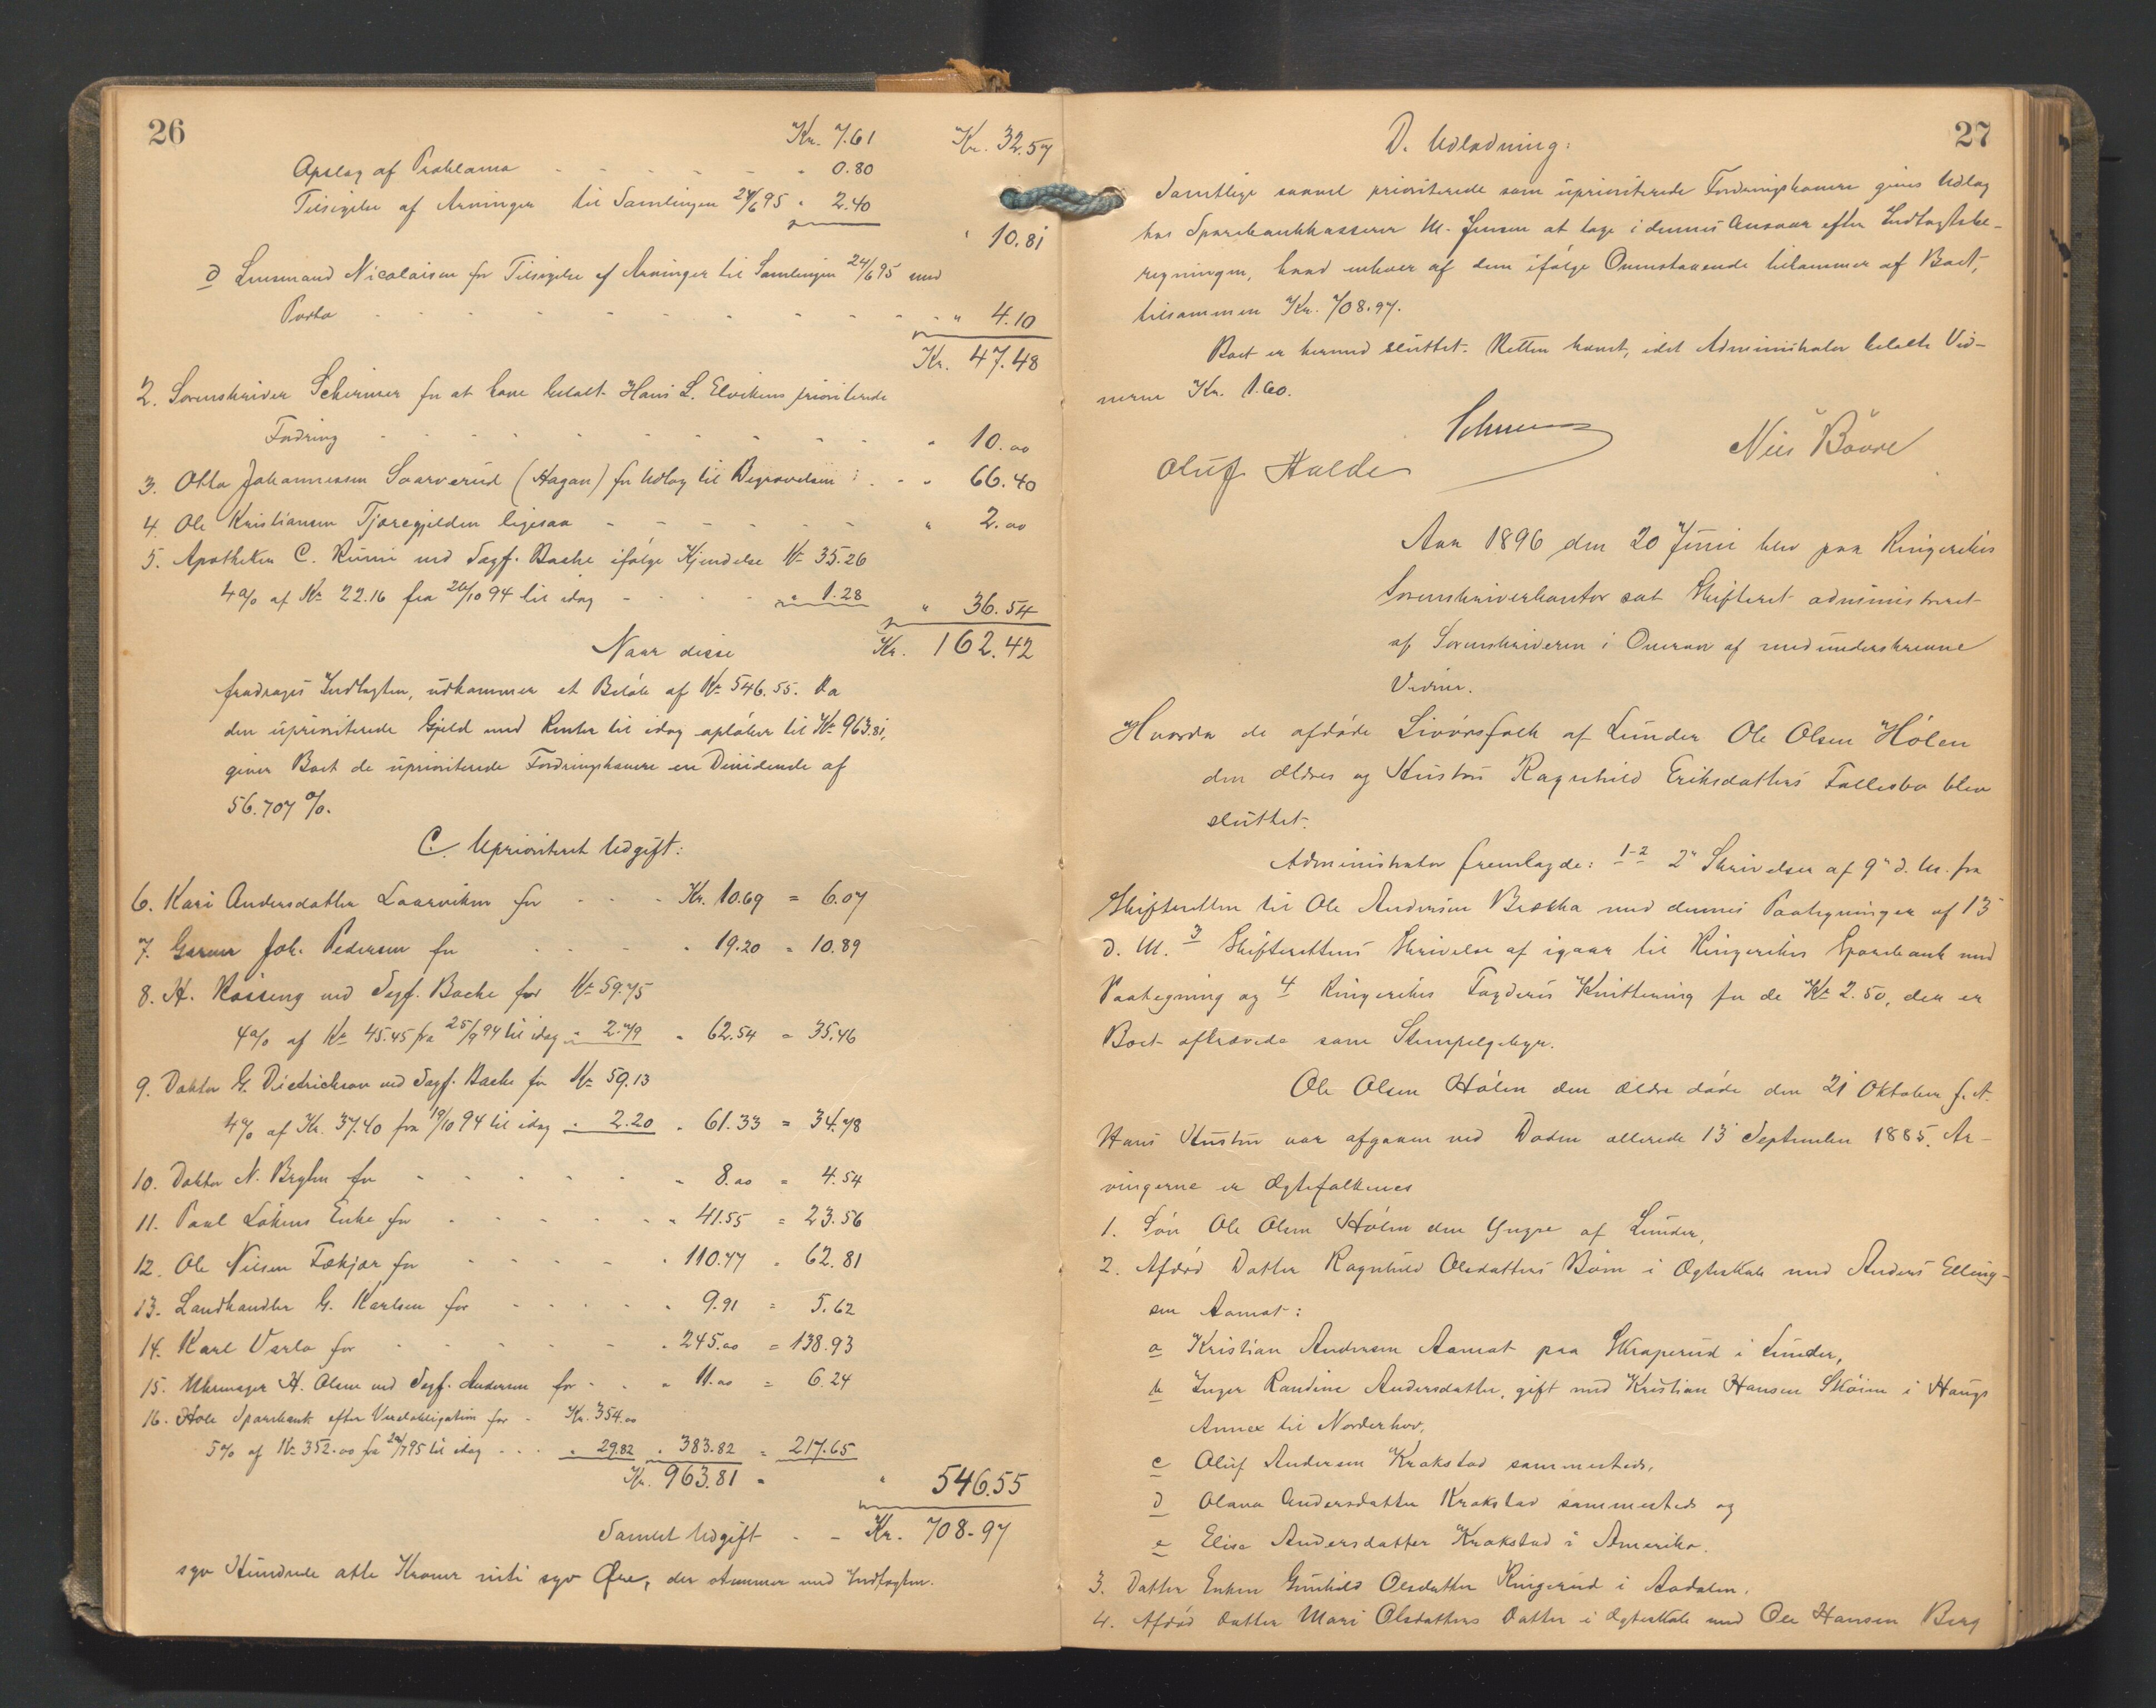 26
Kr. 7.61 Kr. 32.57
Opslag af Proklama - - - - - " 0.80
Tilsigelse af Arvinger til Samlingen 24/6 95 " 2.40
" 10.81
d Lensmand Nicolaisen for Tilsigelse af Arvinger til Samlingen 24/6 95 med
Porto - - - - - - - - - " 4.10
Kr. 47.48
2. Sorenskriver Schirmer for at have betalt Hans L. Elvikens prioriterede
Fordring - - - - - - - - " 10.00
3. Otto Johannessen Saarverud (Hagan) for Udlæg til Begravelsen: - - " 66.40
4. Ole Kristiansen Tjæregjelden ligesaa - - - - - - " 2.00
5. Apotheker C. Riime ved Sagf. Bache ifølge Kjendelse Kr 35.26
4% af Kr 22.16 fra 26/10 94 til idag - - - " 1.28 " 36.54
Naar disse Kr. 162.42
fradrages Indtægten, udkommer et Beløb af Kr 546.55. Da
den uprioriterede Gjeld med Renter til idag opløber til Kr 963.81,
giver Boet de uprioriterede Fordringshavere en Dividende af
56.707 %.
C. Uprioriteret Udgift:
6. Kari Andersdatter Laarviken for - - - Kr. 10.69 = 6.07
7. Garver Joh. Pedersen for - - - - " 19.20 = 10.89
8. H. Røsseng ved Sagf. Bache for Kr 59.75
4% af Kr 45.45 fra 25/9 94 til idag " 2.79 " 62.54 = 35.46
9. Doktor G. Dietrichson ved Sagf. Bache for Kr 59.13
4% af Kr. 37.40 fra 19/10 94 til idag " 2.20 " 61.33 = 34.78
10. Doktor N. Bryhn for - - - - - " 8.00 = 4.54
11. Paul Løkens Enke for - - - - - " 41.55 = 23.56
12. Ole Nilsen Tækjær for - - - - - " 110.77 = 62.81
13. Landhandler G. Karlsen for - - - - - " 9.91 = 5.62
14. Karl Varlo for - - - - - " 245.00 = 138.93
15. Uhrmager H. Olsen ved Sagf. Andersen for - - " 11.00 = 6.24
16. Hole Sparebank efter Vexelobligation for - Kr. 354.00
5% af Kr 352.00 fra 29/7 95 til idag - - - " 29.82 " 383.82 = 217.65
Kr. 963.81 = " 546.55
Samlet Udgift - - Kr. 708.97
syv Hundrede otte Kroner niti syv Øre, der stemmer med Indtægten.
27
D. Udlodning:
Samtlige saavel prioriterede som uprioriterede Fordringshavere gives Udlæg
hos Sparebankkasserer M. Jensen at tage i dennes Ansvar efter Indtægtsbe-
regningen, hvad enhver af dem ifølge Ovenstaaende tilkommer af Boet,
tilsammen Kr. 708.97.
Boet er hermed sluttet. Retten hævet, idet Administrator betalte Vid-
nerne Kr. 1.60.
Schirmer
Oluf Halde Nils Bövre
Aar 1896 den 20 Juni blev paa Ringerikes
Sorenskriverkontor sat Skifteret administreret
af Sorenskriveren i Overvær af medunderskrevne
Vidner.
Hvorda de afdøde Livørsfolk af Lunder Ole Olsen Hølen
den ældres og Hustru Ragnhild Eriksdatters Fællesbo blev
sluttet.
Administrator fremlagde: 1-2 2de Skrivelser af 9de d. M. fra
Skifteretten til Ole Andersen Bræka med dennes Paategninger af 13
d. M. 3 Skifterettens Skrivelse af igaar til Ringerikes Sparebank med
Paategning og 4 Ringerikes Fogderis Kvittering for de Kr 2.50, der er
Boet afkrævede som Stempelgebyr.
Ole Olsen Hølen den ældre døde den 21 Oktober f. A.
Hans Hustru var afgaaen ved Døden allerede 13 September 1885. Ar-
vingerne er Ægtefolkenes
1. Søn Ole Olsen Hølen den Yngre af Lunder,
2. Afdød Datter Ragnhild Olsdatters Børn i Ægteskab med Anders Elling-
sen Aamot:
a Kristian Andersen Aamot paa Skraperud i Lunder,
b Inger Randine Andersdatter, gift med Kristian Hansen Skøien i Haugs
Annex til Norderhov,
c Oluf Andersen Krakstad sammesteds,
d Olava Andersdatter Krakstad sammesteds og
e Elise Andersdatter Krakstad i Amerika.
3. Datter Enken Gunhild Olsdatter Ringerud i Aadalen.
4. Afdød Datter Mari Olsdatters Datter i Ægteskab med Ole Hansen Berg